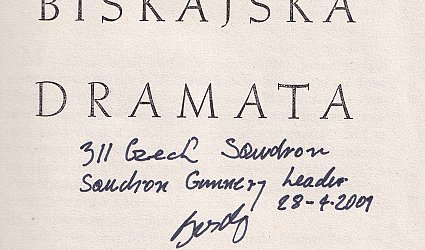 BISKAJSKÁ
DRAMATA
311 Czech Squdron
Squdron Gunnery Leader
28-4.2009